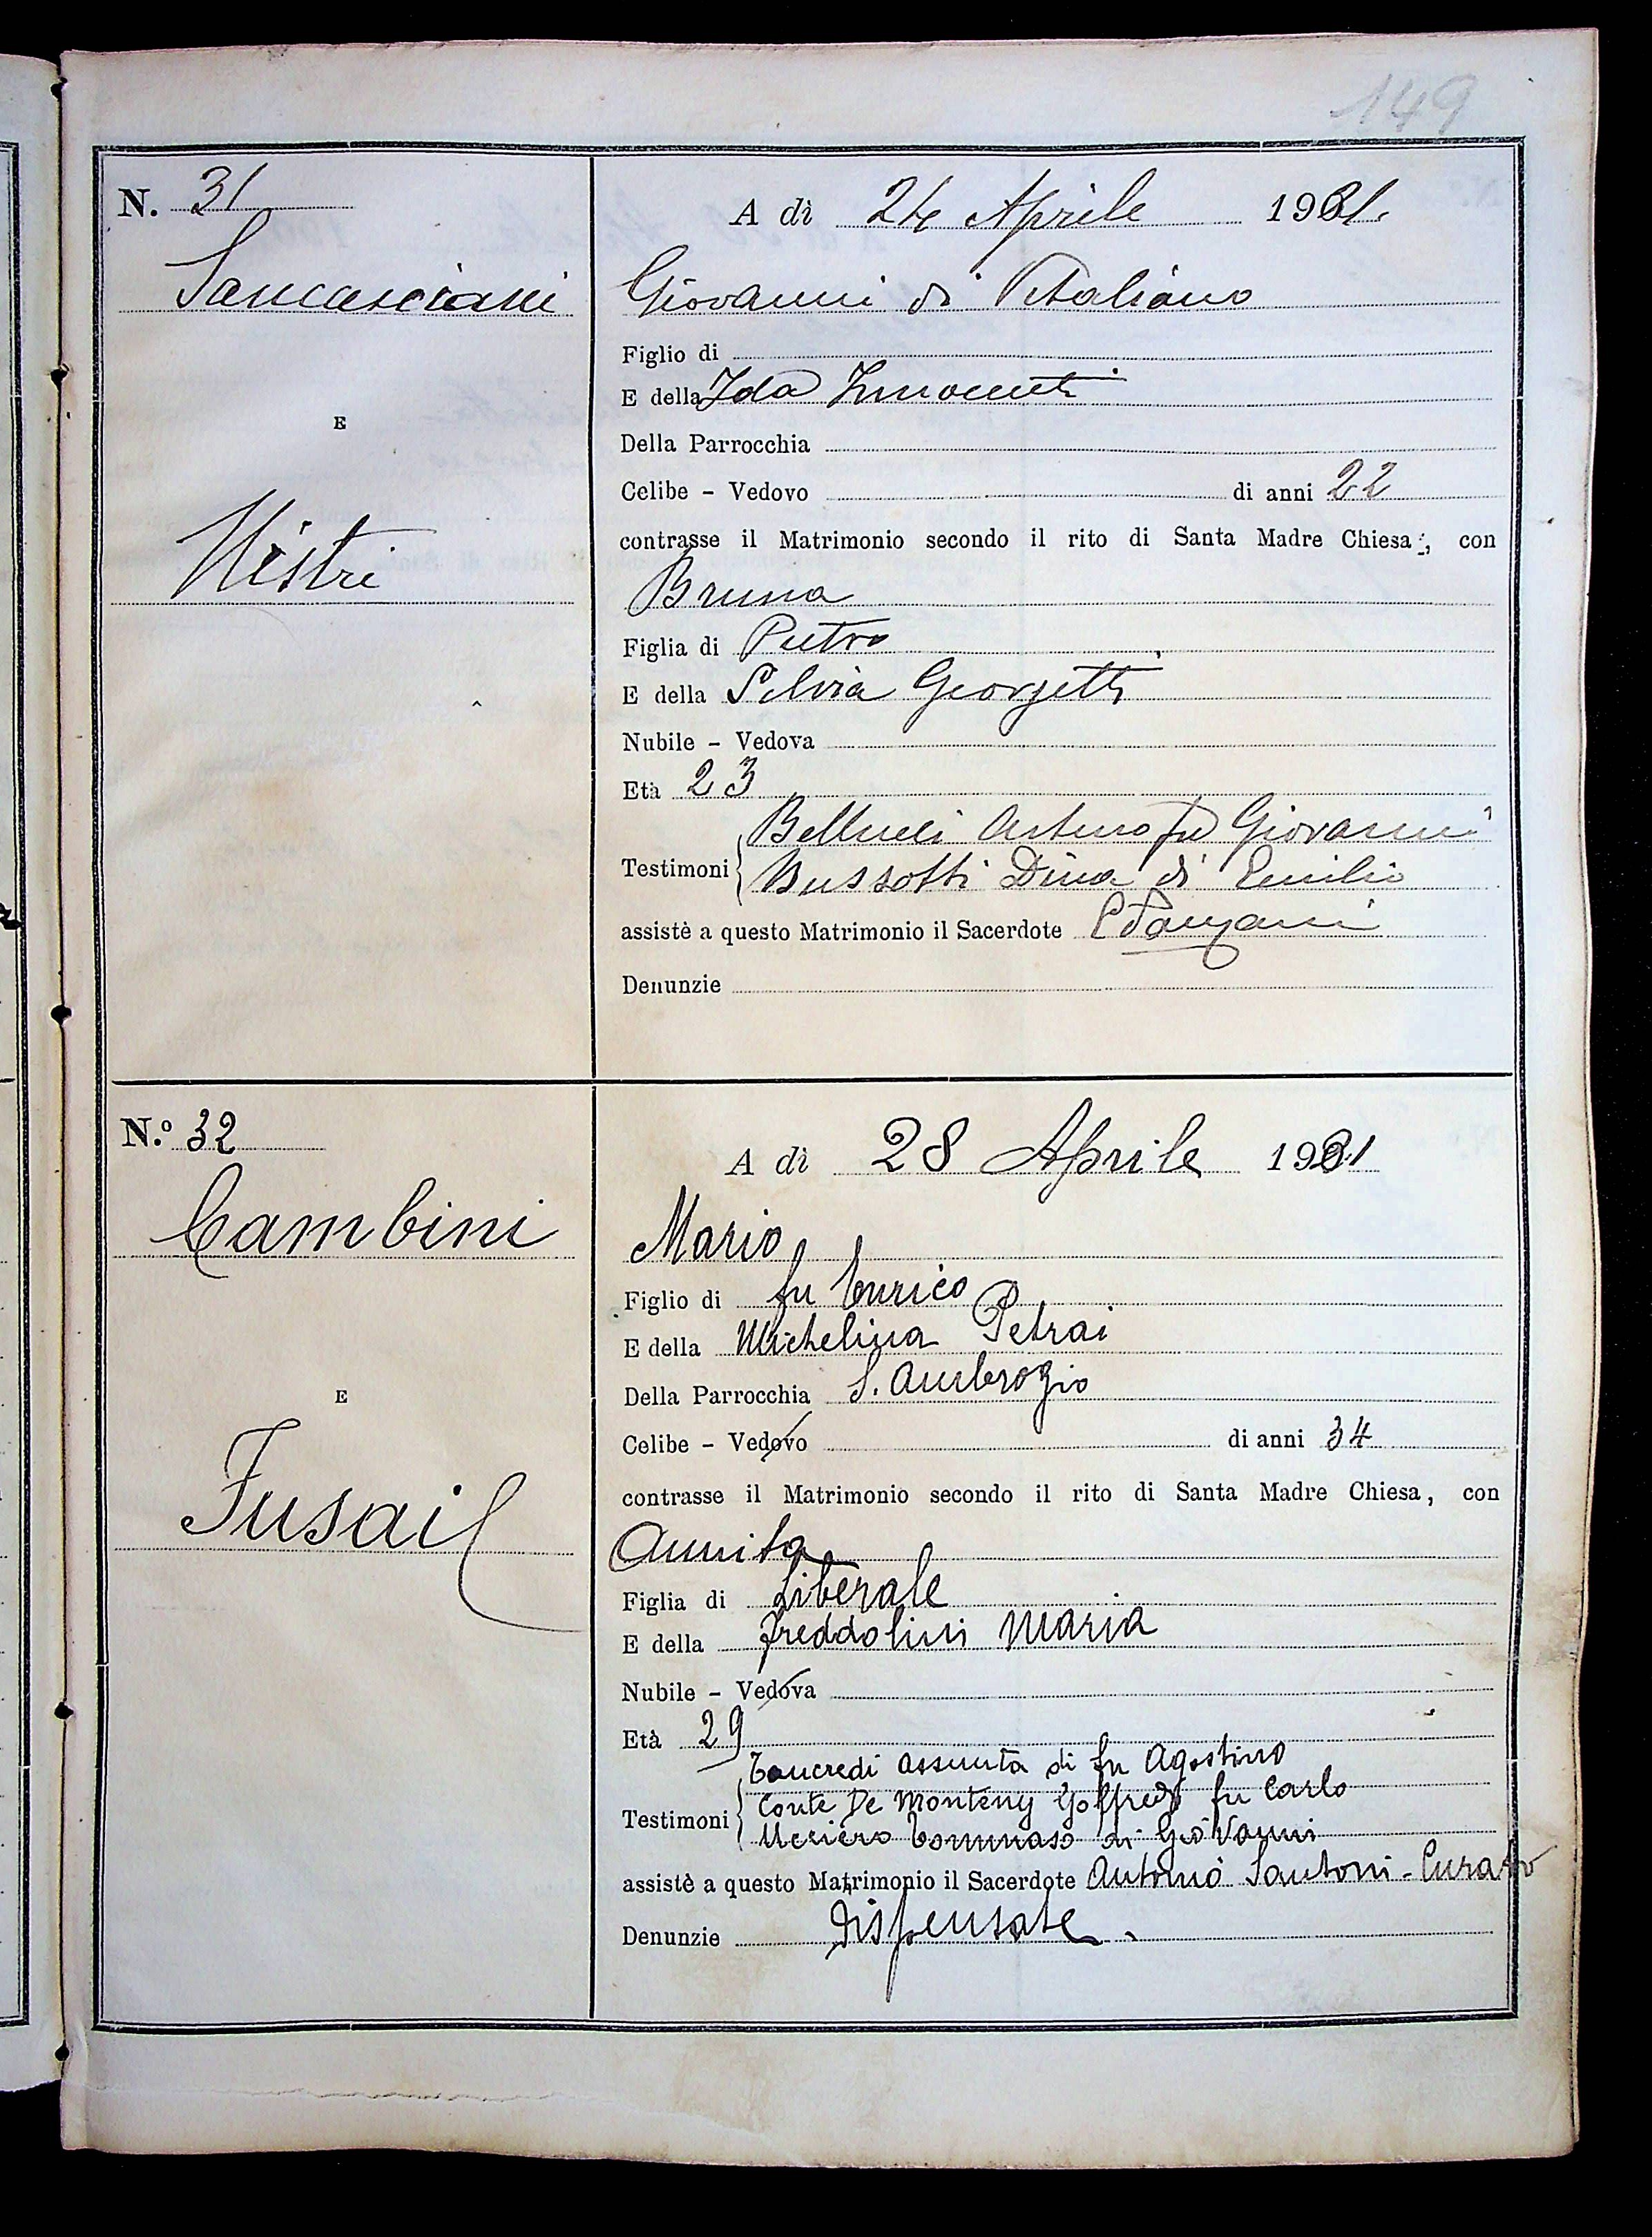 149
N. 31
A dì 24 Aprile 1931.
Sancasciani
Giovanni di Vitaliano
Figlio di
E della Ida Innocenti
E
Della Parrocchia
Celibe - Vedovo di anni 22
contrasse il Matrimonio secondo il rito di Santa Madre Chiesa, con
Nistri
Bruna
Figlia di Pietro
E della Silvia Georgetti
Nubile - Vedova
Età 23
Bellucci Arturo fu Giovanni
Testimoni Bussotti Dina di Emilio
assistè a questo Matrimonio il Sacerdote
Denunzie
N.º 32
A dì 28 Aprile 1931
Cambini
Mario
Figlio di fu Enrico
E della Michelina Petrai
Della Parrocchia S. Ambrogio
E
Celibe - Vedovo di anni 34
contrasse il Matrimonio secondo il rito di Santa Madre Chiesa, con
Fusai
Annita
Figlia di Liberale
E della Freddolini Maria
Nubile - Vedova
Età 29
Tancredi Assunta di fu Agostino
Conte De Monteny Golfredo fu Carlo
Testimoni
Tommaso di Giovanni
assistè a questo Matrimonio il Sacerdote Antonio Santoni - Curato
Denunzie dispensate.